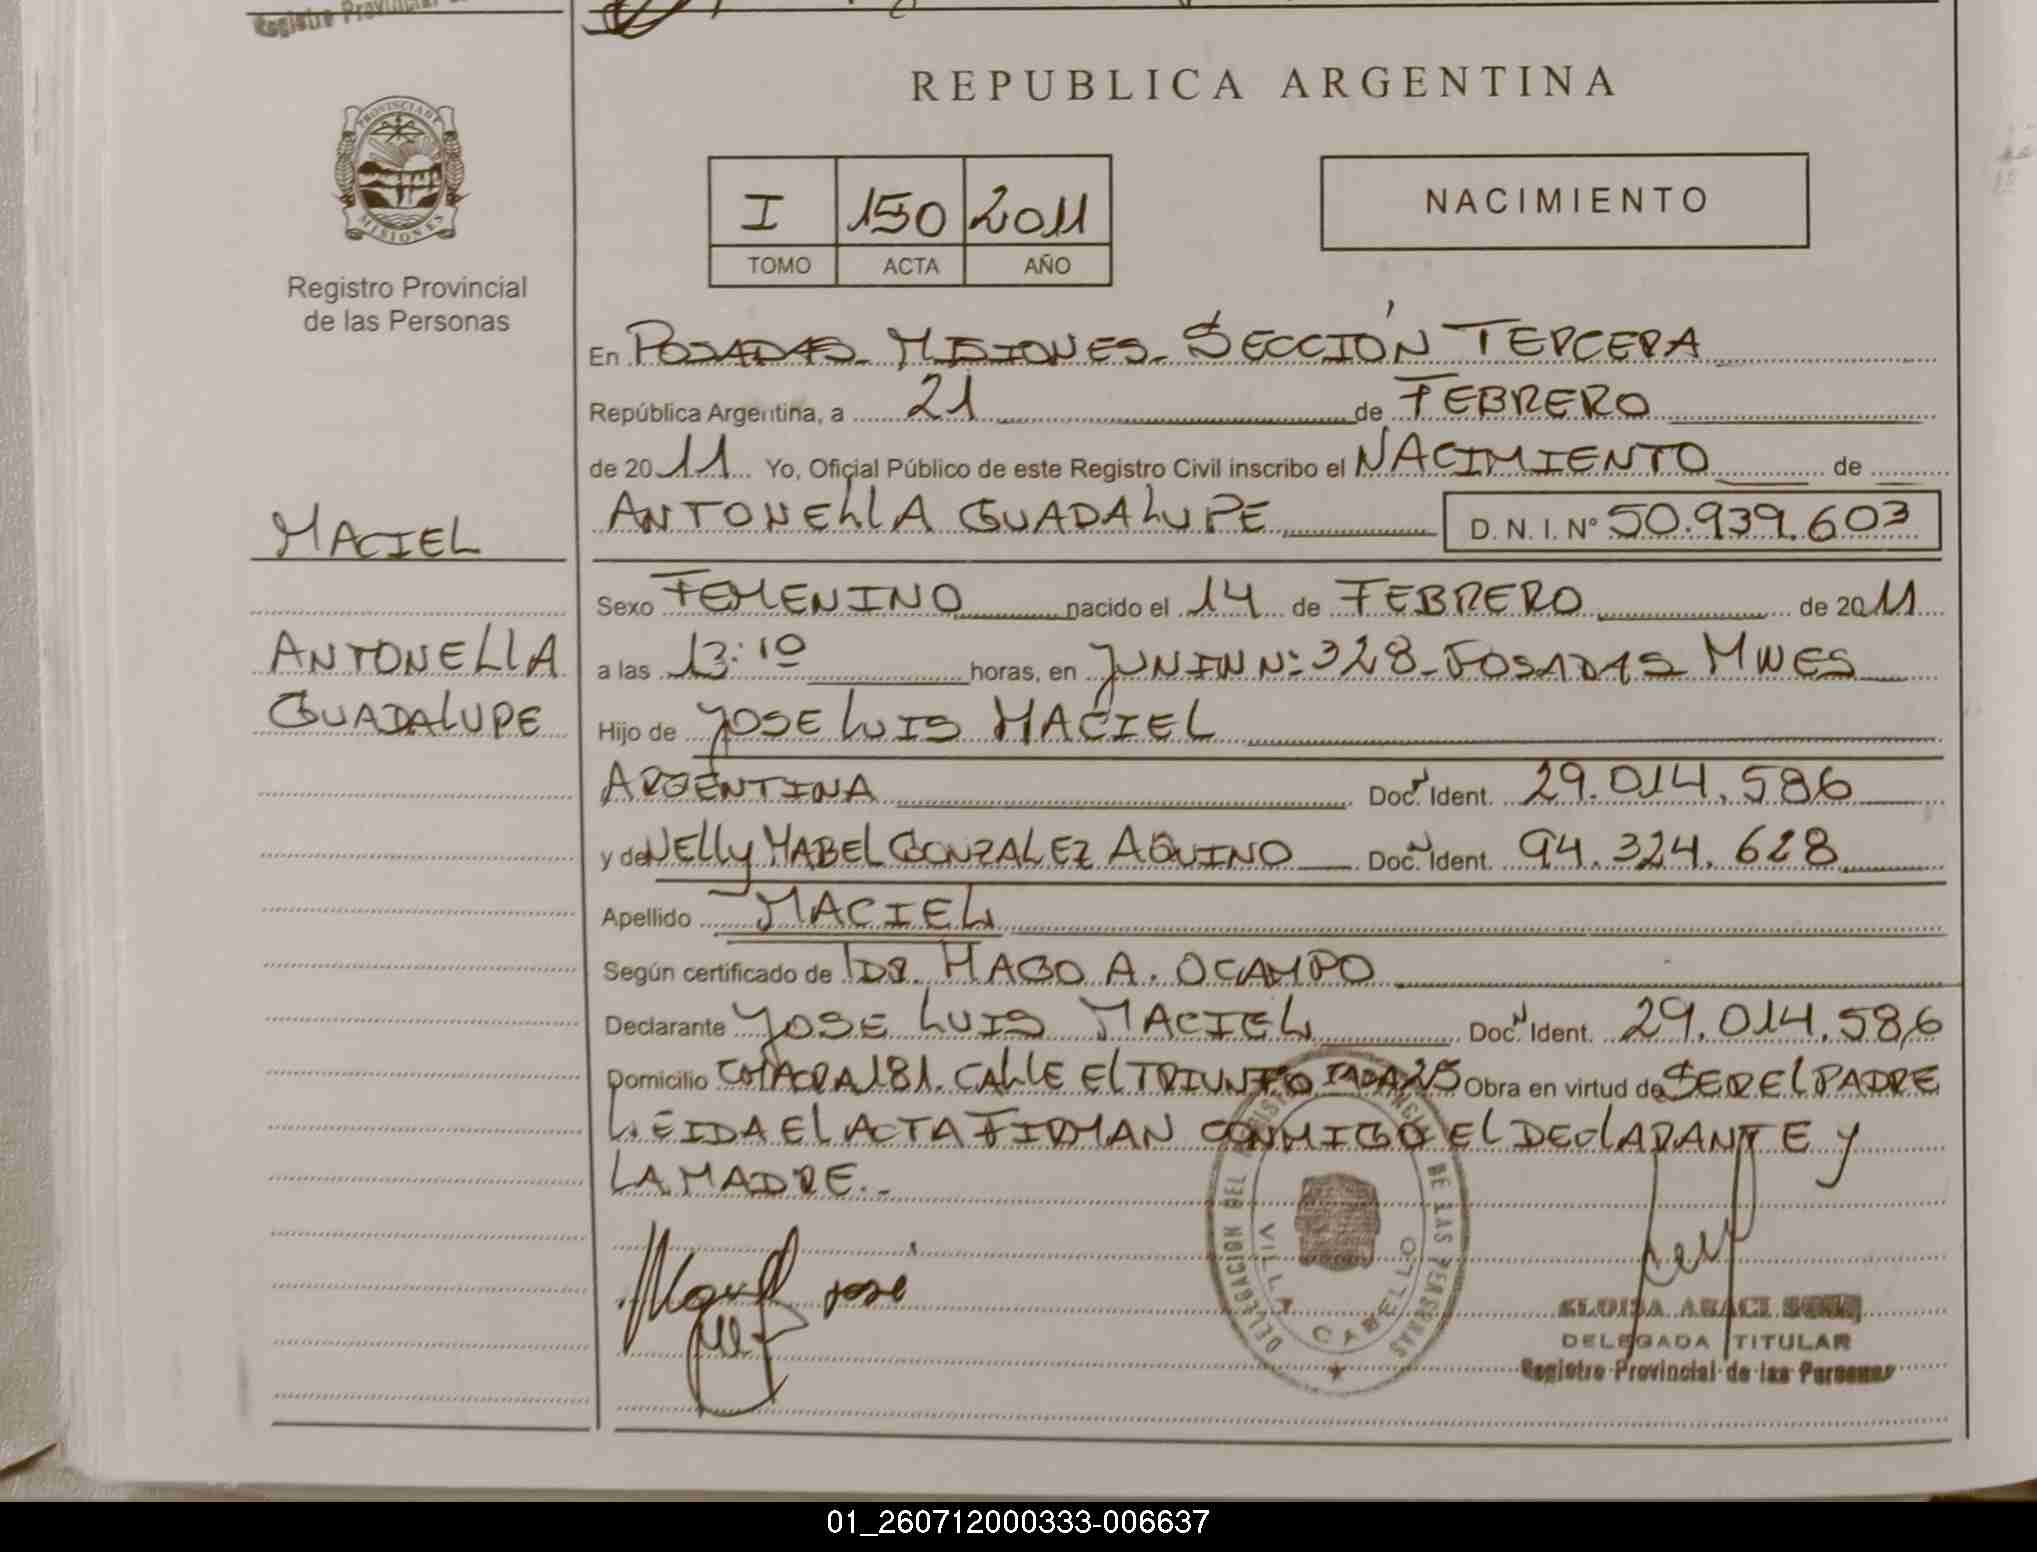 Registro Provincial
REPUBLICA ARGENTINA
PROVINCIA DE
MISIONES
Registro Provincial
de las Personas
I 150 2011
TOMO ACTA AÑO
NACIMIENTO
En POSADAS - MISIONES - SECCIÓN TERCERA
República Argentina, a 21 de FEBRERO
de 2011 Yo, Oficial Público de este Registro Civil inscribo el NACIMIENTO de
MACIEL
ANTONELLA GUADALUPE D. N. I. Nº 50.939.603
Sexo FEMENINO nacido el 14 de FEBRERO de 2011
ANTONELLA
GUADALUPE
a las 13:10 horas, en JUNIN Nº 328 - POSADAS MNES
Hijo de JOSE LUIS MACIEL
ARGENTINA Doc. N Ident. 29.014.586
y de NELLY MABEL GONZALEZ AQUINO Doc. N Ident. 94.324.628
Apellido MACIEL
Según certificado de DR. HAGO A. OCAMPO
Declarante JOSE LUIS MACIEL Doc. N Ident. 29.014.586
Domicilio CHACRA 181. CALLE EL TRIUNFO 25 Obra en virtud de SER EL PADRE
LEIDA EL ACTA FIRMAN CONMIGO EL DECLARANTE Y
LA MADRE.-
jose
DELEGACION DEL REGISTRO PROVINCIAL DE LAS PERSONAS
VILLA CABELLO
ELOISA ARACI
DELEGADA TITULAR
Registro Provincial de las Personas
01_260712000333-006637